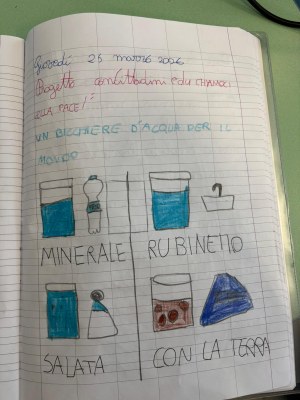 Giovedì 26 marzo 2026
Progetto concittadini "du thamoci
alla pace!"
UN BICCHIERE D'ACQUA PER IL
MONDO
MINERALE RUBINETTO
SALATA CON LA TERRA